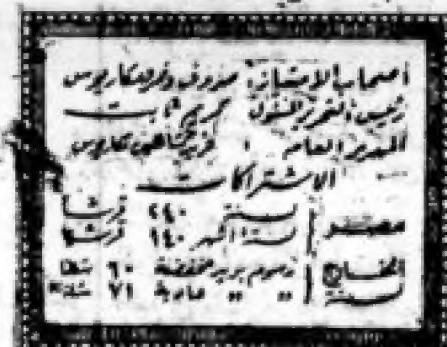 أصحاب الامتياز: صروف ونمر ومكاريوس
رئيس التحرير المسئول كريم ثابت
المدير العام : مكاريوس
الاشتراكات
مصر سنة ٢٤٠ قرشا
ستة أشهر ١٤٠ قرشا
الخارج رسوم بريد مخفضة ٦٠ شلنا
لسنة " " عادية ٧١ شلنا